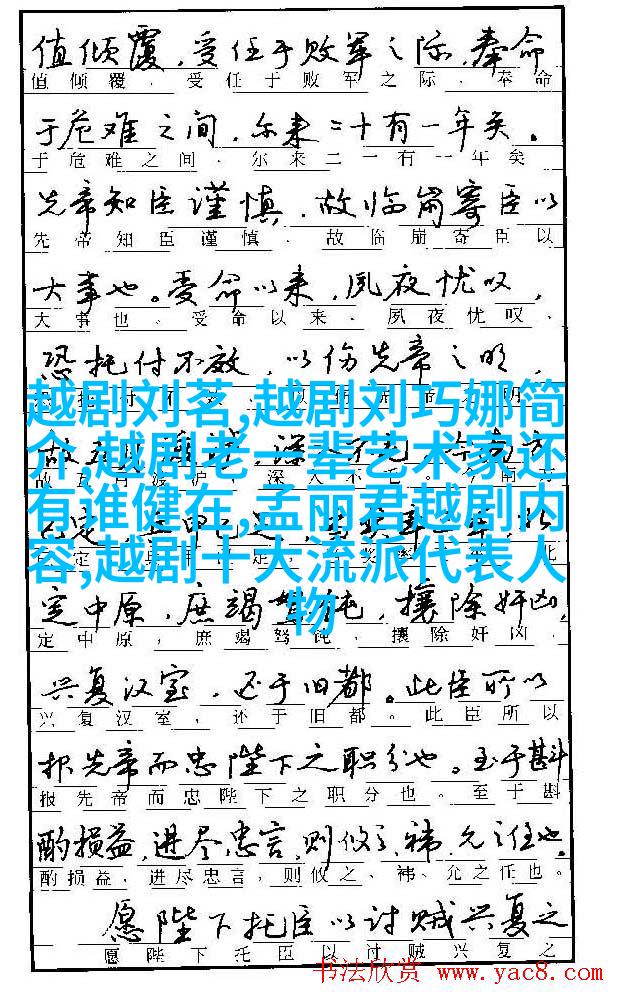 值倾覆，受任于败军之际，奉命
值倾覆，受任于败军之际，奉命
于危难之间，尔来二十有一年矣。
于危难之间，尔来二一有一年矣
先帝知臣谨慎，故临崩寄臣以
先帝知臣谨慎，故临崩寄臣以
大事也。受命以来，夙夜忧叹，
大事也。受命以来，夙夜忧叹，
恐托付不效，以伤先帝之明，
越剧刘茗,越剧刘巧娜简
介,越剧老一辈艺术家还
有谁健在,孟丽君越剧内
容,越剧十大流派代表人
物
深入不毛
定中原，庶竭驽钝，攘除奸凶，
定中原，庶竭驽钝，攘除奸凶，
兴复汉室，还于旧都。此臣所以
兴复汉室，还于旧都。此臣所以
报先帝而忠陛下之职分也。至于斟
报先帝而忠陛下之职分也。至于斟
酌损益，进尽忠言，则攸之、祎、允之任也。
酌损益，进尽忠言，则攸之、祎、允之任也。
愿陛下托臣以讨贼兴复之
愿陛下托臣以讨贼兴复之
书法欣赏 www.yac8.com